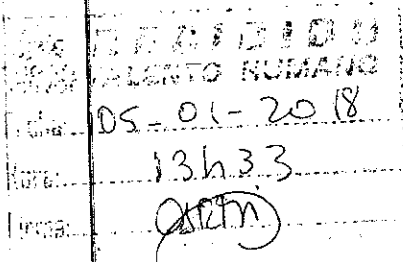 RECIBIDO
TALENTO HUMANO
Fecha: 05-01-2018
Hora: 13h33
Firma: